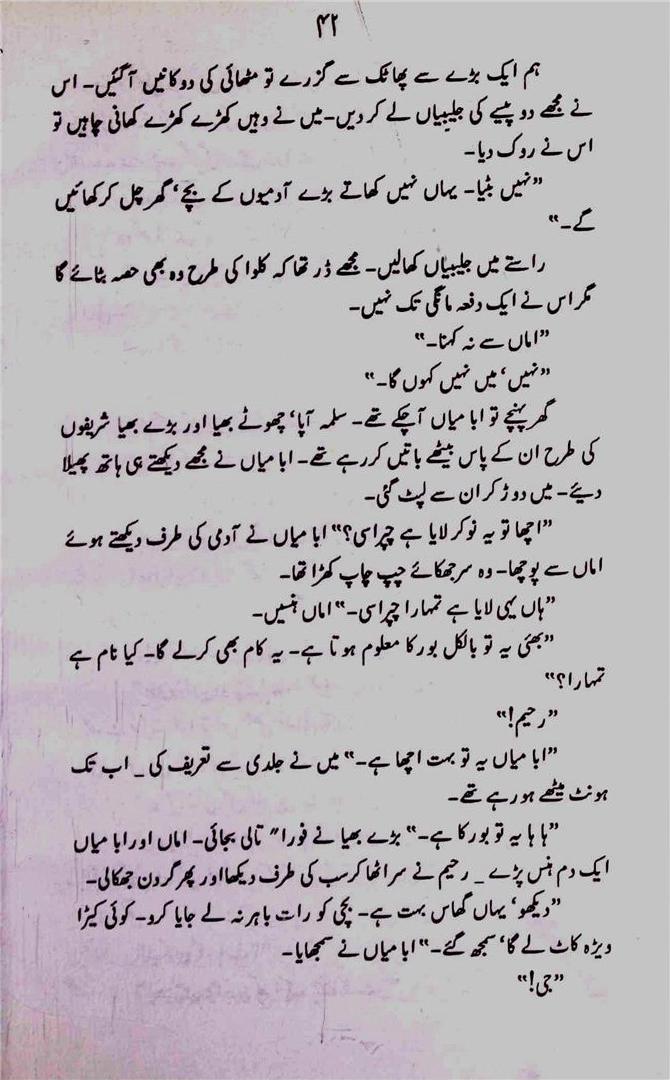 ۴۲
ہم ایک بڑے سے پھاٹک سے گزرے تو مٹھائی کی دوکانیں آ گئیں۔ اس
نے مجھے دو پیسے کی جلیبیاں لے کر دیں۔ میں نے وہیں کھڑے کھڑے کھانی چاہیں تو
اس نے روک دیا۔
”نہیں بٹیا۔ یہاں نہیں کھاتے بڑے آدمیوں کے بچے‘ گھر چل کر کھائیں
گے۔“
راستے میں جلیبیاں کھالیں۔ مجھے ڈر تھا کہ کلوا کی طرح وہ بھی حصہ بٹائے گا
مگر اس نے ایک دفعہ مانگی تک نہیں۔
”اماں سے نہ کہنا۔“
”نہیں‘ میں نہیں کہوں گا۔“
گھر پہنچے تو ابا میاں آ چکے تھے۔ سلمہ آپا‘ چھوٹے بھیا اور بڑے بھیا شریفوں
کی طرح ان کے پاس بیٹھے باتیں کر رہے تھے۔ ابا میاں نے مجھے دیکھتے ہی ہاتھ پھیلا
دیئے۔ میں دوڑ کر ان سے لپٹ گئی۔
”اچھا تو یہ نوکر لایا ہے چپراسی؟“ ابا میاں نے آدمی کی طرف دیکھتے ہوئے
اماں سے پوچھا۔ وہ سر جھکائے چپ چاپ کھڑا تھا۔
”ہاں یہی لایا ہے تمہارا چپراسی۔“ اماں ہنسیں۔
”بھئی یہ تو بالکل بور کا معلوم ہوتا ہے۔ یہ کام بھی کر لے گا۔ کیا نام ہے
تمہارا؟“
”رحیم!“
”ابا میاں یہ تو بہت اچھا ہے۔“ میں نے جلدی سے تعریف کی _ اب تک
ہونٹ میٹھے ہو رہے تھے۔
”ہا ہا یہ تو بور کا ہے۔“ بڑے بھیا نے فورا″ تالی بجائی۔ اماں اور ابا میاں
ایک دم ہنس پڑے _ رحیم نے سر اٹھا کر سب کی طرف دیکھا اور پھر گردن جھکالی۔
”دیکھو‘ یہاں گھاس بہت ہے۔ بچی کو رات باہر نہ لے جایا کرو۔ کوئی کیڑا
ویڑہ کاٹ لے گا‘ سمجھ گئے۔“ ابا میاں نے سمجھایا۔
”جی!“